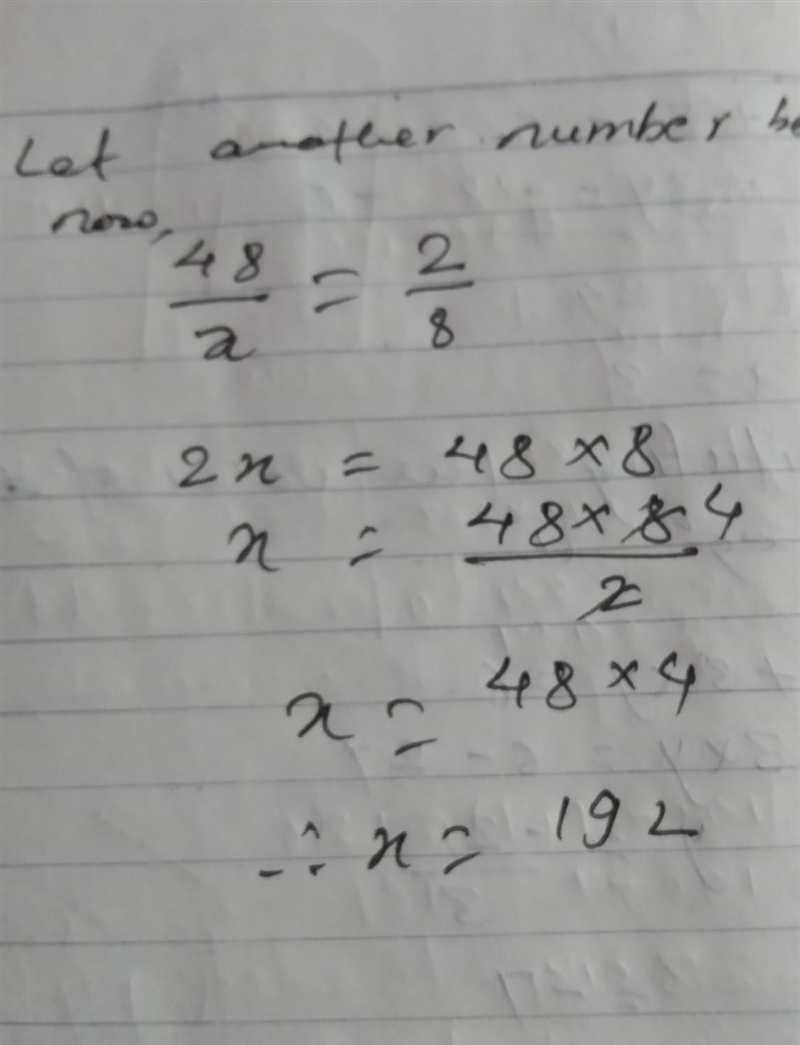 Let another number be
now,
48/x = 2/8
2x = 48 × 8
x = 48 × 8 4 / 2
x = 48 × 4
∴ x = 192